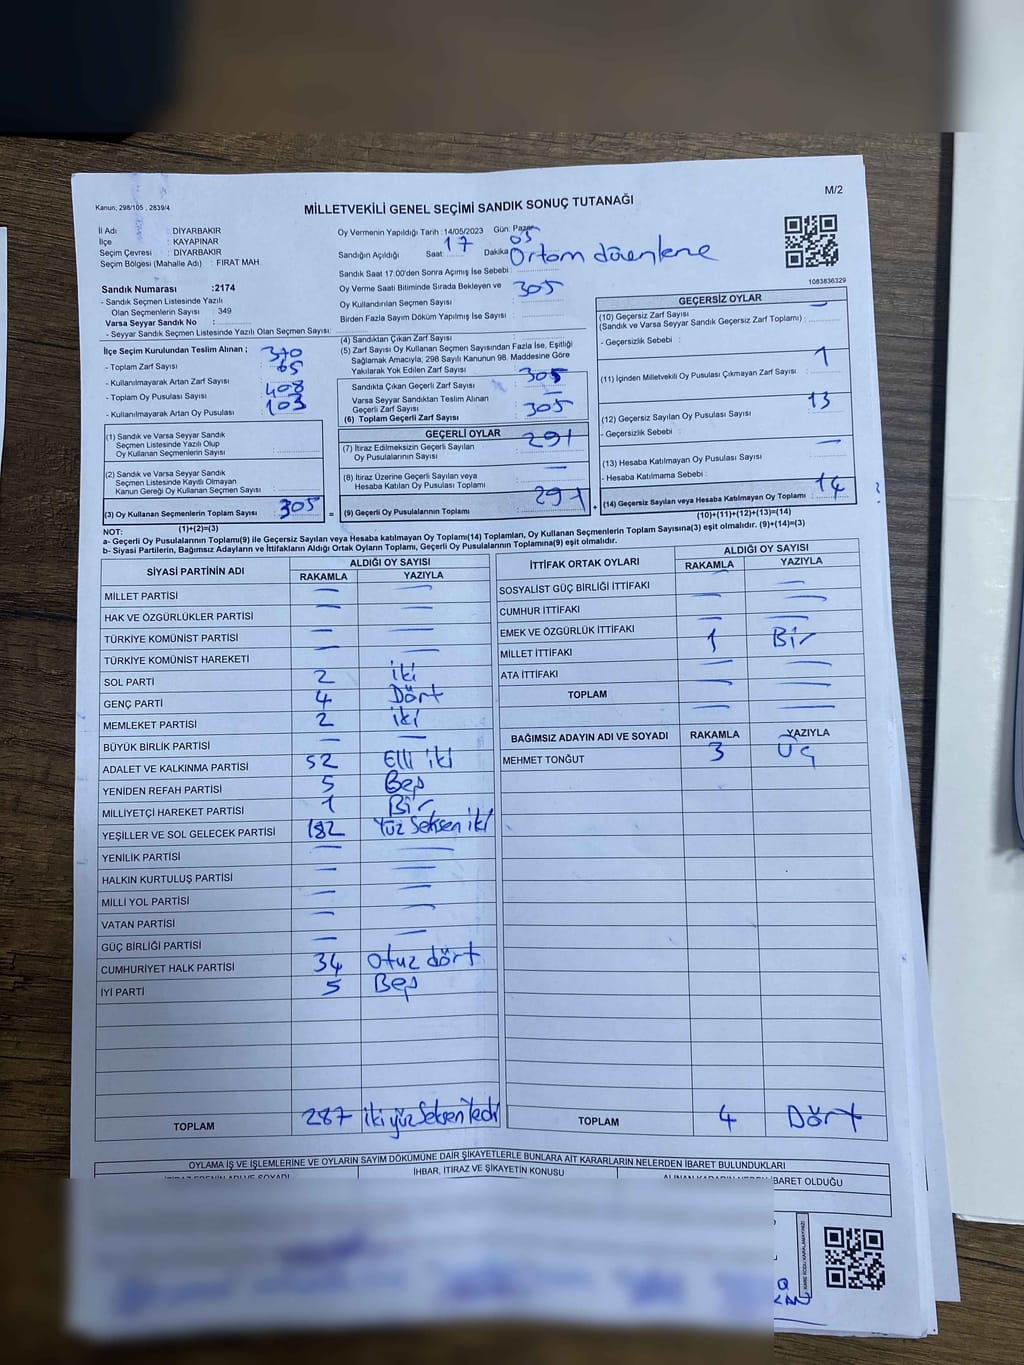 M/2
Kanun, 298/105 , 2839/4
MİLLETVEKİLİ GENEL SEÇİMİ SANDIK SONUÇ TUTANAĞI
İl Adı : DİYARBAKIR
İlçe : KAYAPINAR
Seçim Çevresi : DİYARBAKIR
Seçim Bölgesi (Mahalle Adı) : FIRAT MAH.
Sandık Numarası :2174
- Sandık Seçmen Listesinde Yazılı
Olan Seçmenlerin Sayısı : 349
Varsa Seyyar Sandık No :
- Seyyar Sandık Seçmen Listesinde Yazılı Olan Seçmen Sayısı:
Oy Vermenin Yapıldığı Tarih :14/05/2023 Gün: Pazar
Sandığın Açıldığı Saat: 17 Dakika: 05 Ortam düzenleme
Sandık Saat 17.00'den Sonra Açımış İse Sebebi :
Oy Verme Saati Bitiminde Sırada Bekleyen ve
Oy Kullandırılan Seçmen Sayısı : 305
Birden Fazla Sayım Döküm Yapılmış İse Sayısı :
1083836329
İlçe Seçim Kurulundan Teslim Alınan ;
- Toplam Zarf Sayısı : 370
- Kullanılmayarak Artan Zarf Sayısı : 65
- Toplam Oy Pusulası Sayısı : 408
- Kullanılmayarak Artan Oy Pusulası : 103
(1) Sandık ve Varsa Seyyar Sandık
Seçmen Listesinde Yazılı Olup
Oy Kullanan Seçmenlerin Sayısı :
(2) Sandık ve Varsa Seyyar Sandık
Seçmen Listesinde Kayıtlı Olmayan
Kanun Gereği Oy Kullanan Seçmen Sayısı :
(3) Oy Kullanan Seçmenlerin Toplam Sayısı : 305
(1)+(2)=(3)
(4) Sandıktan Çıkan Zarf Sayısı :
(5) Zarf Sayısı Oy Kullanan Seçmen Sayısından Fazla İse, Eşitliği
Sağlamak Amacıyla; 298 Sayılı Kanunun 98. Maddesine Göre
Yakılarak Yok Edilen Zarf Sayısı :
Sandıkta Çıkan Geçerli Zarf Sayısı : 305
Varsa Seyyar Sandıktan Teslim Alınan
Geçerli Zarf Sayısı : —
(6) Toplam Geçerli Zarf Sayısı : 305
GEÇERLİ OYLAR
(7) İtiraz Edilmeksizin Geçerli Sayılan
Oy Pusulalarının Sayısı : 291
(8) İtiraz Üzerine Geçerli Sayılan veya
Hesaba Katılan Oy Pusulası Toplamı : —
= (9) Geçerli Oy Pusulalarının Toplamı : 291 +
GEÇERSİZ OYLAR
(10) Geçersiz Zarf Sayısı
(Sandık ve Varsa Seyyar Sandık Geçersiz Zarf Toplamı) : —
- Geçersizlik Sebebi :
(11) İçinden Milletvekili Oy Pusulası Çıkmayan Zarf Sayısı : 1
(12) Geçersiz Sayılan Oy Pusulası Sayısı : 13
- Geçersizlik Sebebi :
(13) Hesaba Katılmayan Oy Pusulası Sayısı : —
- Hesaba Katılmama Sebebi :
(14) Geçersiz Sayılan veya Hesaba Katılmayan Oy Toplamı : 14
(10)+(11)+(12)+(13)=(14)
NOT:
a- Geçerli Oy Pusulalarının Toplamı(9) ile Geçersiz Sayılan veya Hesaba katılmayan Oy Toplamı(14) Toplamları, Oy Kullanan Seçmenlerin Toplam Sayısına(3) eşit olmalıdır. (9)+(14)=(3)
b- Siyasi Partilerin, Bağımsız Adayların ve İttifakların Aldığı Ortak Oyların Toplamı, Geçerli Oy Pusulalarının Toplamına(9) eşit olmalıdır.
SİYASİ PARTİNİN ADI ALDIĞI OY SAYISI
RAKAMLA YAZIYLA
MİLLET PARTİSİ — —
HAK VE ÖZGÜRLÜKLER PARTİSİ — —
TÜRKİYE KOMÜNİST PARTİSİ — —
TÜRKİYE KOMÜNİST HAREKETİ — —
SOL PARTİ 2 iki
GENÇ PARTİ 4 Dört
MEMLEKET PARTİSİ 2 iki
BÜYÜK BİRLİK PARTİSİ — —
ADALET VE KALKINMA PARTİSİ 52 Elli iki
YENİDEN REFAH PARTİSİ 5 Beş
MİLLİYETÇİ HAREKET PARTİSİ 1 Bir
YEŞİLLER VE SOL GELECEK PARTİSİ 182 Yüz Seksen iki
YENİLİK PARTİSİ — —
HALKIN KURTULUŞ PARTİSİ — —
MİLLİ YOL PARTİSİ — —
VATAN PARTİSİ — —
GÜÇ BİRLİĞİ PARTİSİ — —
CUMHURİYET HALK PARTİSİ 34 Otuz dört
İYİ PARTİ 5 Beş
TOPLAM 287 iki yüz Seksen Yedi
İTTİFAK ORTAK OYLARI ALDIĞI OY SAYISI
RAKAMLA YAZIYLA
SOSYALİST GÜÇ BİRLİĞİ İTTİFAKI — —
CUMHUR İTTİFAKI — —
EMEK VE ÖZGÜRLÜK İTTİFAKI — —
MİLLET İTTİFAKI 1 Bir
ATA İTTİFAKI — —
TOPLAM — —
BAĞIMSIZ ADAYIN ADI VE SOYADI RAKAMLA YAZIYLA
MEHMET TONĞUT 3 Üç
TOPLAM 4 Dört
OYLAMA İŞ VE İŞLEMLERİNE VE OYLARIN SAYIM DÖKÜMÜNE DAİR ŞİKAYETLERLE BUNLARA AİT KARARLARIN NELERDEN İBARET BULUNDUKLARI
İHBAR, İTİRAZ VE ŞİKAYETİN KONUSU
İBARET OLDUĞU